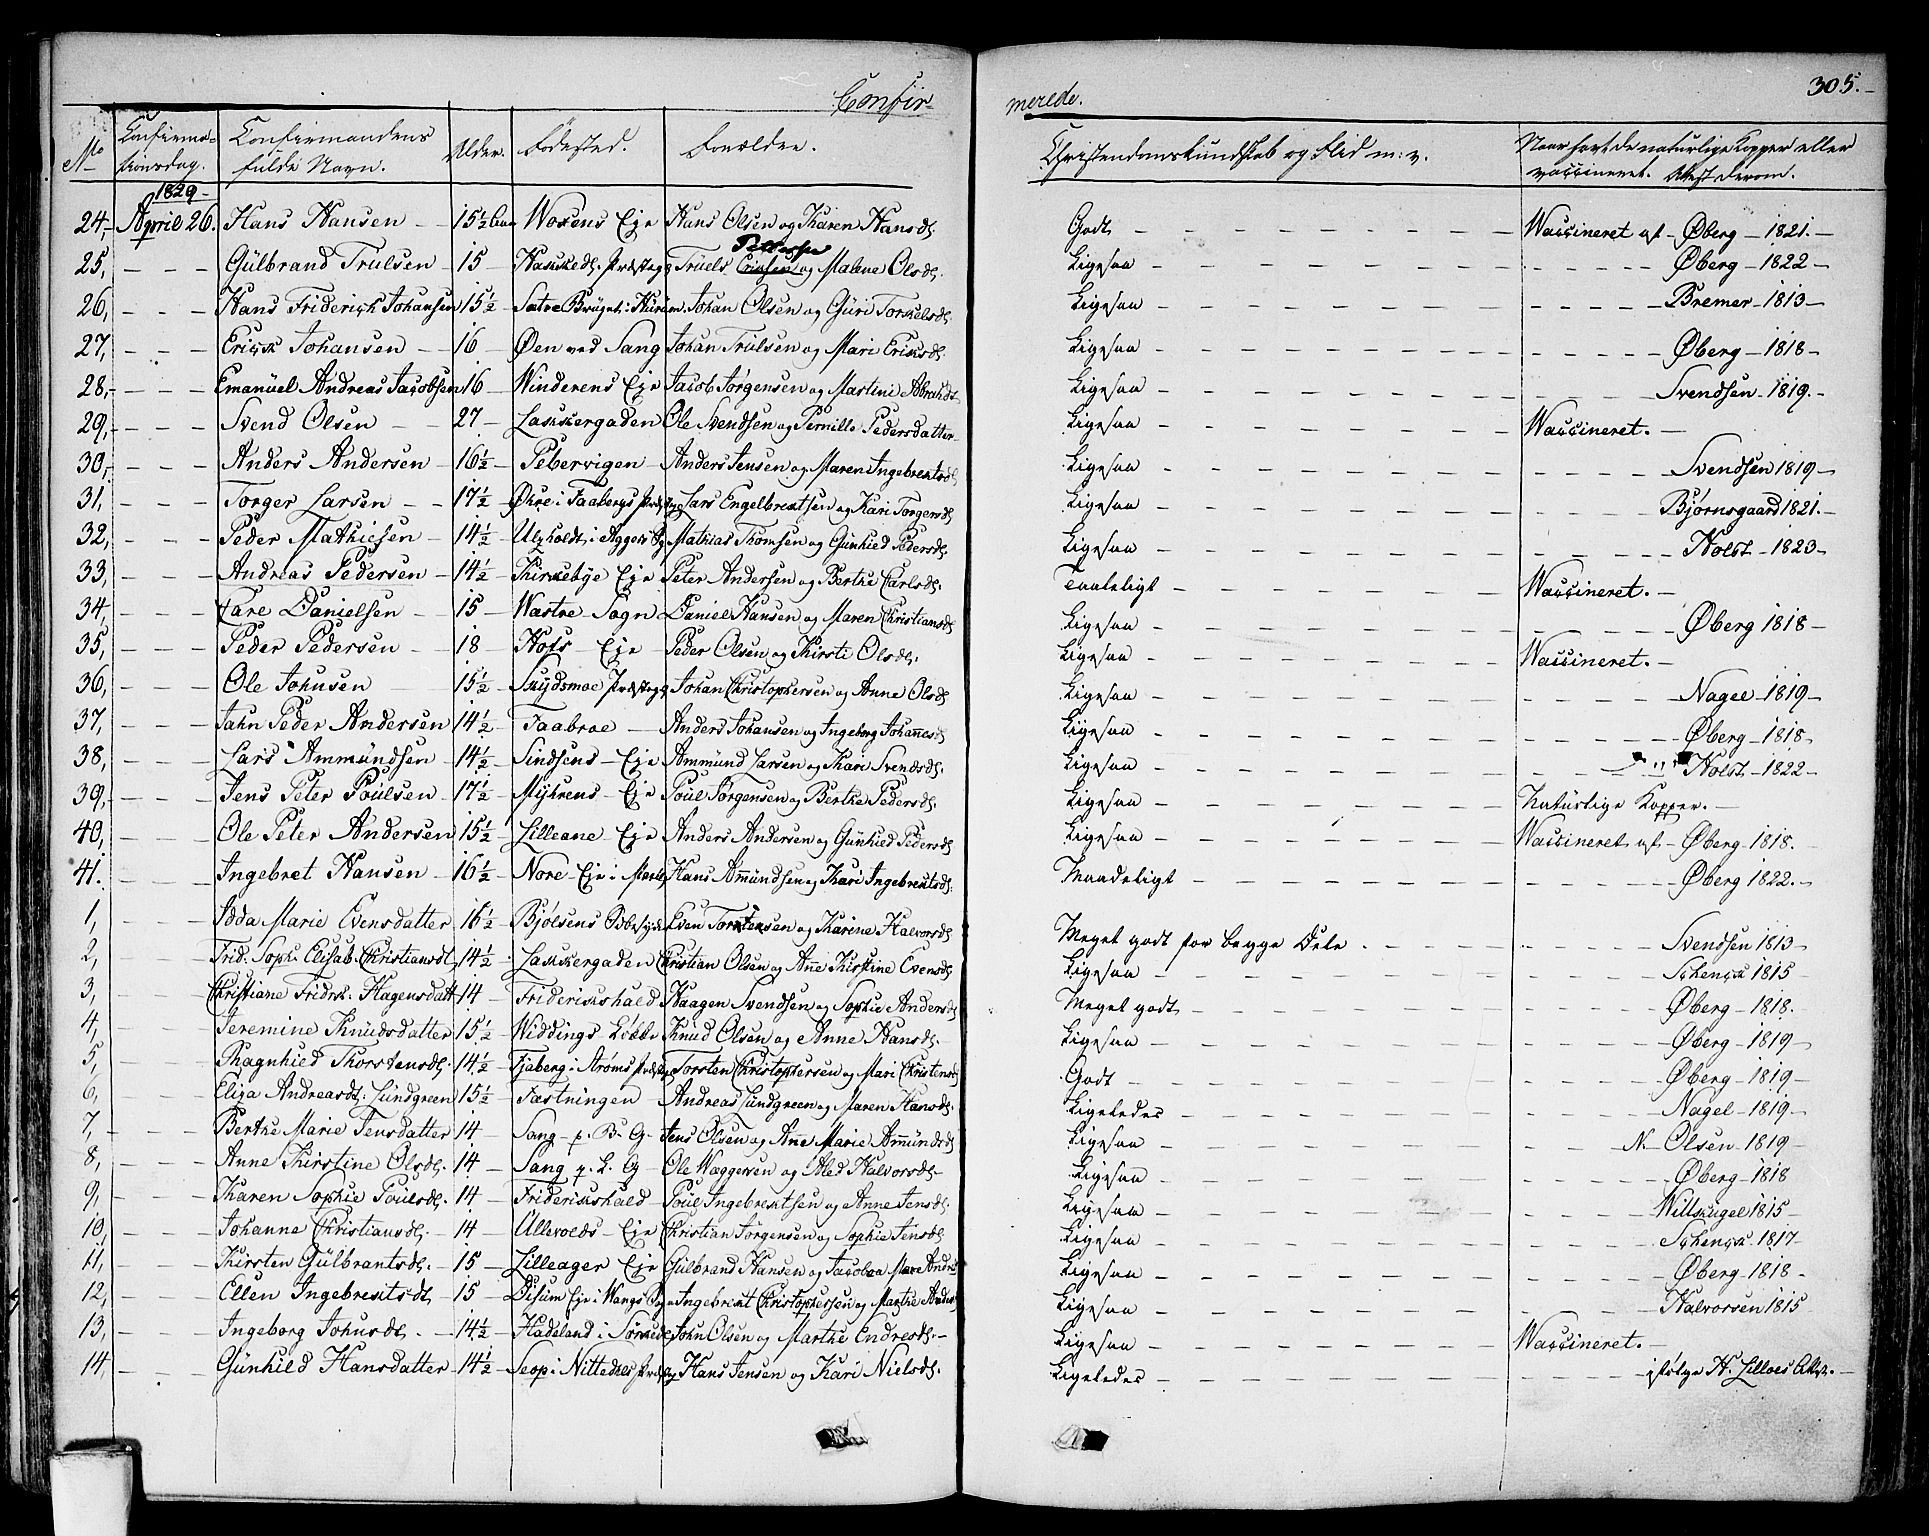 Confir-
merede.
305.
No
Confirma-
tionsdag.
Confirmandens
fulde Navn.
Alder.
Födested.
Forældre.
Christendomskundskab og Flid m: v.
Naar havt de naturlige Kopper eller
vaccineret. Attest derom.
1829
24, April 26. Hans Hansen 15½ Aar Woxens Eje Hans Olsen og Karen Hansd. Godt Waccineret af Øberg 1821.
Pettersen
25, Gülbrand Trulsen 15 Præstegj Truels Erichsen og Malene Olsd. Ligesaa Øberg 1822
26, Hans Friderich Johansen 15½ Sætre Bruget i Hurum Johan Olsen og Güri Torkelsd. Ligesaa Bremer 1813
27, Erick Johansen 16 Øen ved Sang Johan Trülsen og Mari Eriksd. Ligesaa Øberg 1818
28, Emanüel Andreas Jacobsen 16 Winderens Eje Jacob Jørgensen og Martine Ligesaa Svendsen 1819.
29, Svend Olsen 27 Lakkergaden Ole Svendsen og Pernille Pedersdatter Ligesaa Waccineret.
30, Anders Andersen 16½ Pebervigen Anders Jensen og Maren Ingebretsd. Ligesaa Svendsen 1819
31, Torger Larsen 17½ i Faabergs Præstegj Lars Engelbrektsen og Kari Torgersd. Ligesaa Bjørnsgaard 1821.
32, Peder Mathiesen 14½ Ulxholdt i Aggers Sogn Mathias Thomsen og Günhild Pedersd. Ligesaa Holst 1823
33, Andreas Pedersen 14½ Kirkebye Eje Peter Andersen og Berthe Carlsd. Taaleligt Waccineret.
34, Fare Danielsen 15 Westre Sogn Daniel Hansen og Maren Christiansd. Ligesaa Øberg 1818
35, Peder Pedersen 18 Hofs Eje Peder Olsen og Kirsti Olsd. Ligesaa Waccineret.
36, Ole Johnsen 15½ Skydsmoe Præstegj Johan Christophersen og Anne Olsd. Ligesaa Nagel 1819
37, Jahn Peder Andersen 14½ Faabroe Anders Johansen og Ingeborg Johannesd. Ligesaa Øberg 1818
38, Lars Ammündsen 14½ Sindsens Eje Ammünd Larsen og Kari Svendsd. Ligesaa Holst 1822
39, Jens Peter Poülsen 17½ Myhrens Eje Poül Jørgensen og Berthe Pedersd. Ligesaa Natürlige Kopper.
40, Ole Peter Andersen 15½ Lilleane Eje Anders Andersen og Günhild Pedersd. Ligesaa Waccineret af Øberg 1818.
41. Ingebret Hansen 16½ Nore Eje i Hans Ammündsen og Kari Ingebretsd. Maadeligt Øberg 1822.
1, Adda Marie Evensdatter 16½ Bjølsens Even Torstensen og Karine Halvorsd. Meget godt for begge Dele Svendsen 1813
2, Frid: Soph: Elisab. Christiansd. 14½ Lakkergaden Christian Olsen og Anne Kirstine Evensd. Ligesaa Schenck 1815
3, Christiane Fridrk. Hagensdatt 14 Friderikshald Haagen Svendsen og Sophie Andersd. Meget godt Øberg 1818.
4, Jeremine Knudsdatter 15½ Widdings Løkke Knüd Olsen og Anne Hansd. Ligesaa Øberg 1819
5, Ragnhild Thorstensd. 14½ Fjeberg i Strøms Præstegj Torsten Christophersen og Mari Christensd. Godt Øberg 1819
6, Elisa Andreasdt. Lündgreen 15½ Fæstningen Andreas Lündgreen og Maren Hansd. Ligeledes Nagel 1819
7, Berthe Marie Jensdatter 14 Sang p. B. G. Jens Olsen og Anne Marie Ammündsd. Ligesaa N. Olsen 1819
8, Anne Kirstine Olsd. 14 Sang p. L. G. Ole Waggersen og Aled Halvorsd. Ligesaa Øberg 1818
9, Karen Sophie Poülsd. 14 Friderikshald Poül Ingebrektsen og Anne Jensd. Ligesaa Wittkugel 1815
10, Johanne Christiansd. 14 Üllevolds Eje Christian Jørgensen og Sophie Jensd. Ligesaa Schenck 1817
11, Kirsten Gülbrantsd. 15 Lilleager Eje Gülbrand Hansen og Jacobea Marie Ligesaa Øberg 1818
12, Ellen Ingebrektsdt 15 Disum Eje i Wangs Ingebrekt Christophersen og Marthe Ligesaa Halvorsen 1815
13, Ingeborg Johnsd. 14½ Hadeland i John Olsen og Marthe Endresd. Ligesaa Waccineret.
14, Günhild Hansdatter 14½ i Nittedals Præstegj Hans Jensen og Kari Nielsd. Ligeledes ifølge H. Lilloes Attst.